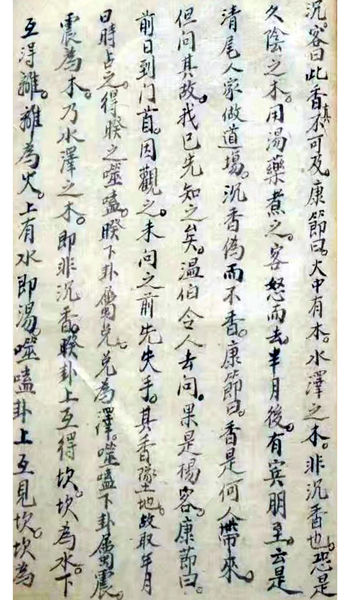 沉。客曰此香真不可及。康節曰。火中有木。水澤之木。非沉香也。恐是
久陰之木。用湯藥煮之。客怒而去。半月後。有賓朋至。云是
清尾人家做道場。沉香偽而不香。康節曰。香是何人帶來。
但问其故。我已先知之矣。温伯令人去问。果是楊客。康節曰。
前日到门首。因觀之。未问之前先失手。其香墜地。故取年月
日時占之。得睽之噬嗑。睽下卦属兑。兑為澤。噬嗑下卦属震。
震為木。乃水澤之木。即非沉香。睽卦上互得坎。坎為水。下
互得離。離為火。上有水即湯。噬嗑卦上互見坎。坎為